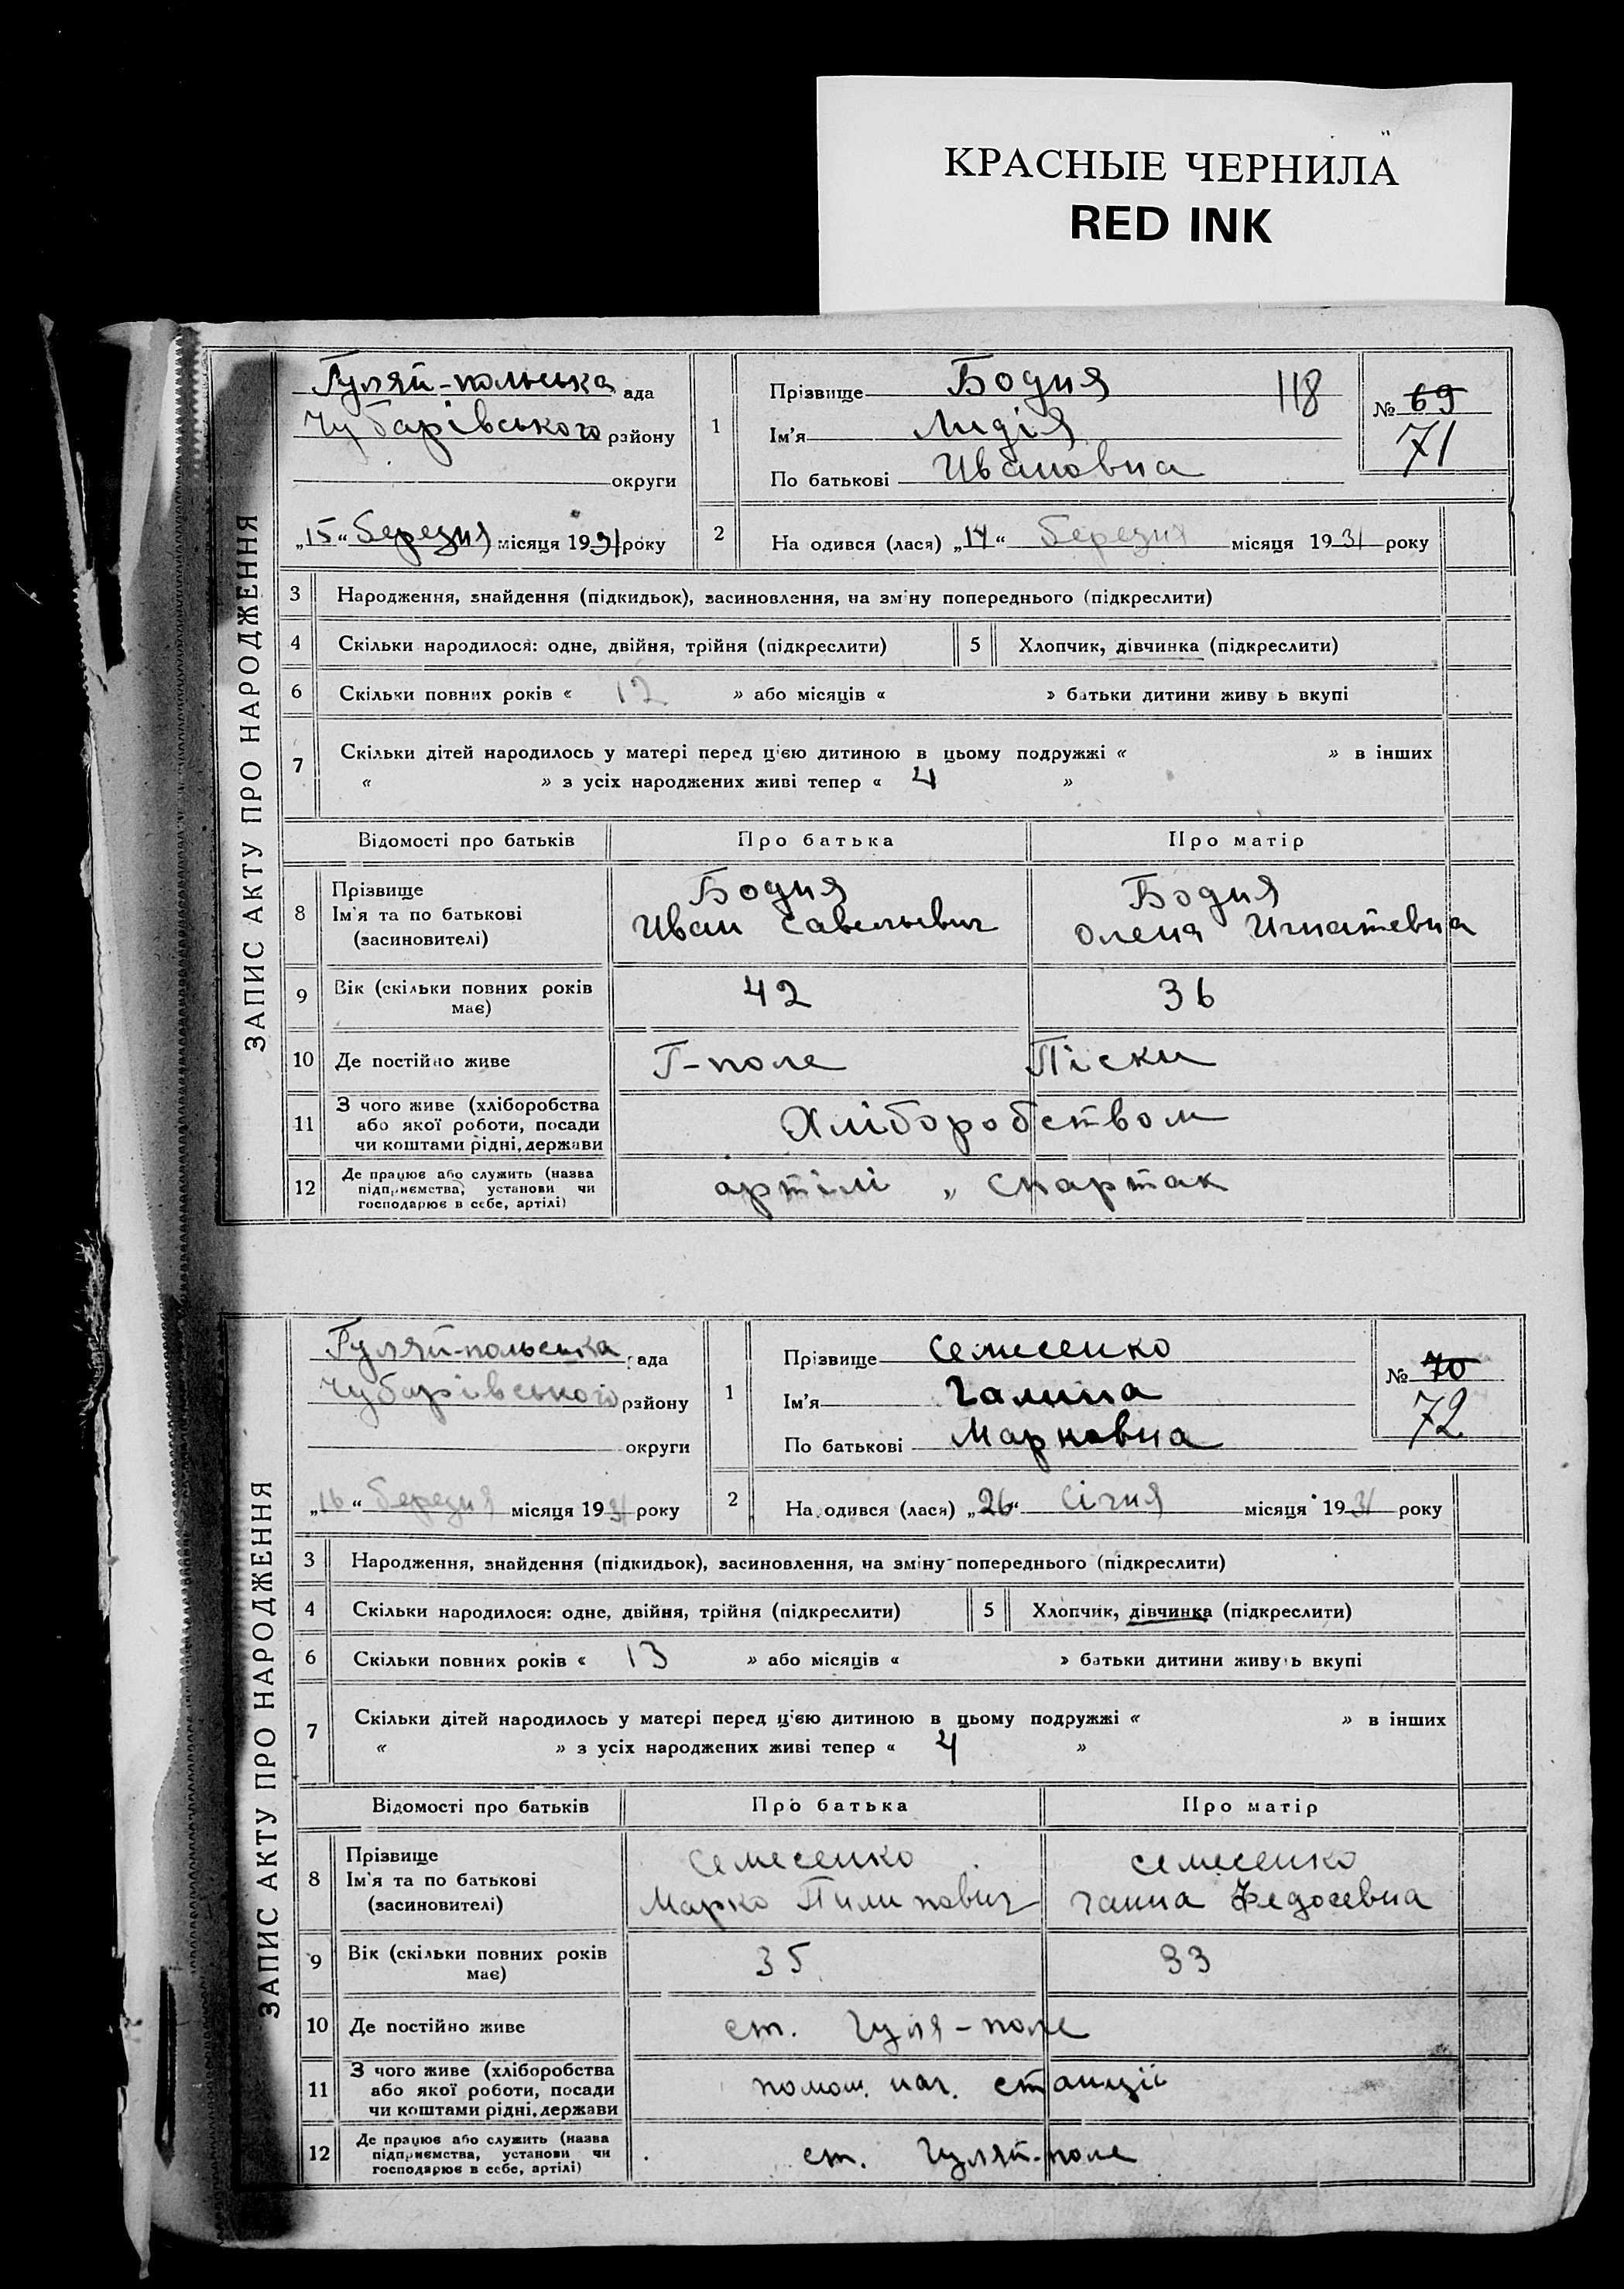 КРАСНЫЕ ЧЕРНИЛА
RED INK
ЗАПИС АКТУ ПРО НАРОДЖЕННЯ
Гуляй-польська ада
Чубарівського району
округи
„15“ березня місяця 1931 року
1
Прізвище Бодня
118
Ім'я Лидія
По батькові Ивановна
№ 69
71
2
На одився (лася) „14“ березня місяця 1931 року
3 Народження, знайдення (підкидьок), засиновлення, на зміну попереднього (підкреслити)
4 Скільки народилося: одне, двійня, трійня (підкреслити) 5 Хлопчик, дівчинка (підкреслити)
6 Скільки повних років « 12 » або місяців « » батьки дитини живу ь вкупі
7 Скільки дітей народилось у матері перед цією дитиною в цьому подружжі « » в інших
« » з усіх народжених живі тепер « 4 »
Відомості про батьків Про батька Про матір
8 Прізвище Ім'я та по батькові (засиновителі)
Бодня
Иван Савельевич
Бодня
Олена Игнатевна
9 Вік (скільки повних років має) 42 36
10 Де постійно живе Г-поле Піски
11 З чого живе (хліборобства або якої роботи, посади чи коштами рідні, держави
Хліборобством
12 Де працює або служить (назва підприємства, установи чи господарює в себе, артілі)
артілі „ Спартак
ЗАПИС АКТУ ПРО НАРОДЖЕННЯ
Гуляй-польська рада
Чубарівського району
округи
„16“ березня місяця 1931 року
1
Прізвище Семесенко
Ім'я Галина
По батькові Марковна
№ 70
72
2
На одився (лася) „26“ Січня місяця 1931 року
3 Народження, знайдення (підкидьок), засиновлення, на зміну попереднього (підкреслити)
4 Скільки народилося: одне, двійня, трійня (підкреслити) 5 Хлопчик, дівчинка (підкреслити)
6 Скільки повних років « 13 » або місяців « » батьки дитини живу ь вкупі
7 Скільки дітей народилось у матері перед цією дитиною в цьому подружжі « » в інших
« » з усіх народжених живі тепер « 4 »
Відомості про батьків Про батька Про матір
8 Прізвище Ім'я та по батькові (засиновителі)
Семесенко
Марко Пилипович
Семесенко
Ганна Федосевна
9 Вік (скільки повних років має) 35 33
10 Де постійно живе ст. Гуля-поле
11 З чого живе (хліборобства або якої роботи, посади чи коштами рідні, держави
помош. нач. станції
12 Де працює або служить (назва підприємства, установи чи господарює в себе, артілі)
ст. Гуляй-поле